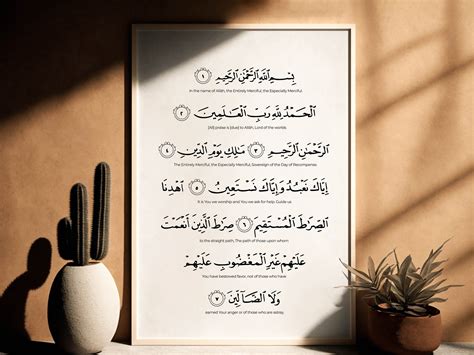 بِسْمِ ٱللَّهِ ٱلرَّحْمَٰنِ ٱلرَّحِيمِ ١
In the name of Allāh, the Entirely Merciful, the Especially Merciful.
ٱلْحَمْدُ لِلَّهِ رَبِّ ٱلْعَٰلَمِينَ ٢
[All] praise is [due] to Allāh, Lord of the worlds.
ٱلرَّحْمَٰنِ ٱلرَّحِيمِ ٣ مَٰلِكِ يَوْمِ ٱلدِّينِ ٤
The Entirely Merciful, the Especially Merciful, Sovereign of the Day of Recompense.
إِيَّاكَ نَعْبُدُ وَإِيَّاكَ نَسْتَعِينُ ٥ ٱهْدِنَا
It is You we worship and You we ask for help. Guide us
ٱلصِّرَٰطَ ٱلْمُسْتَقِيمَ ٦ صِرَٰطَ ٱلَّذِينَ أَنْعَمْتَ
to the straight path, The path of those upon whom
عَلَيْهِمْ غَيْرِ ٱلْمَغْضُوبِ عَلَيْهِمْ
You have bestowed favor, not of those who have
وَلَا ٱلضَّآلِّينَ ٧
earned Your anger or of those who are astray.